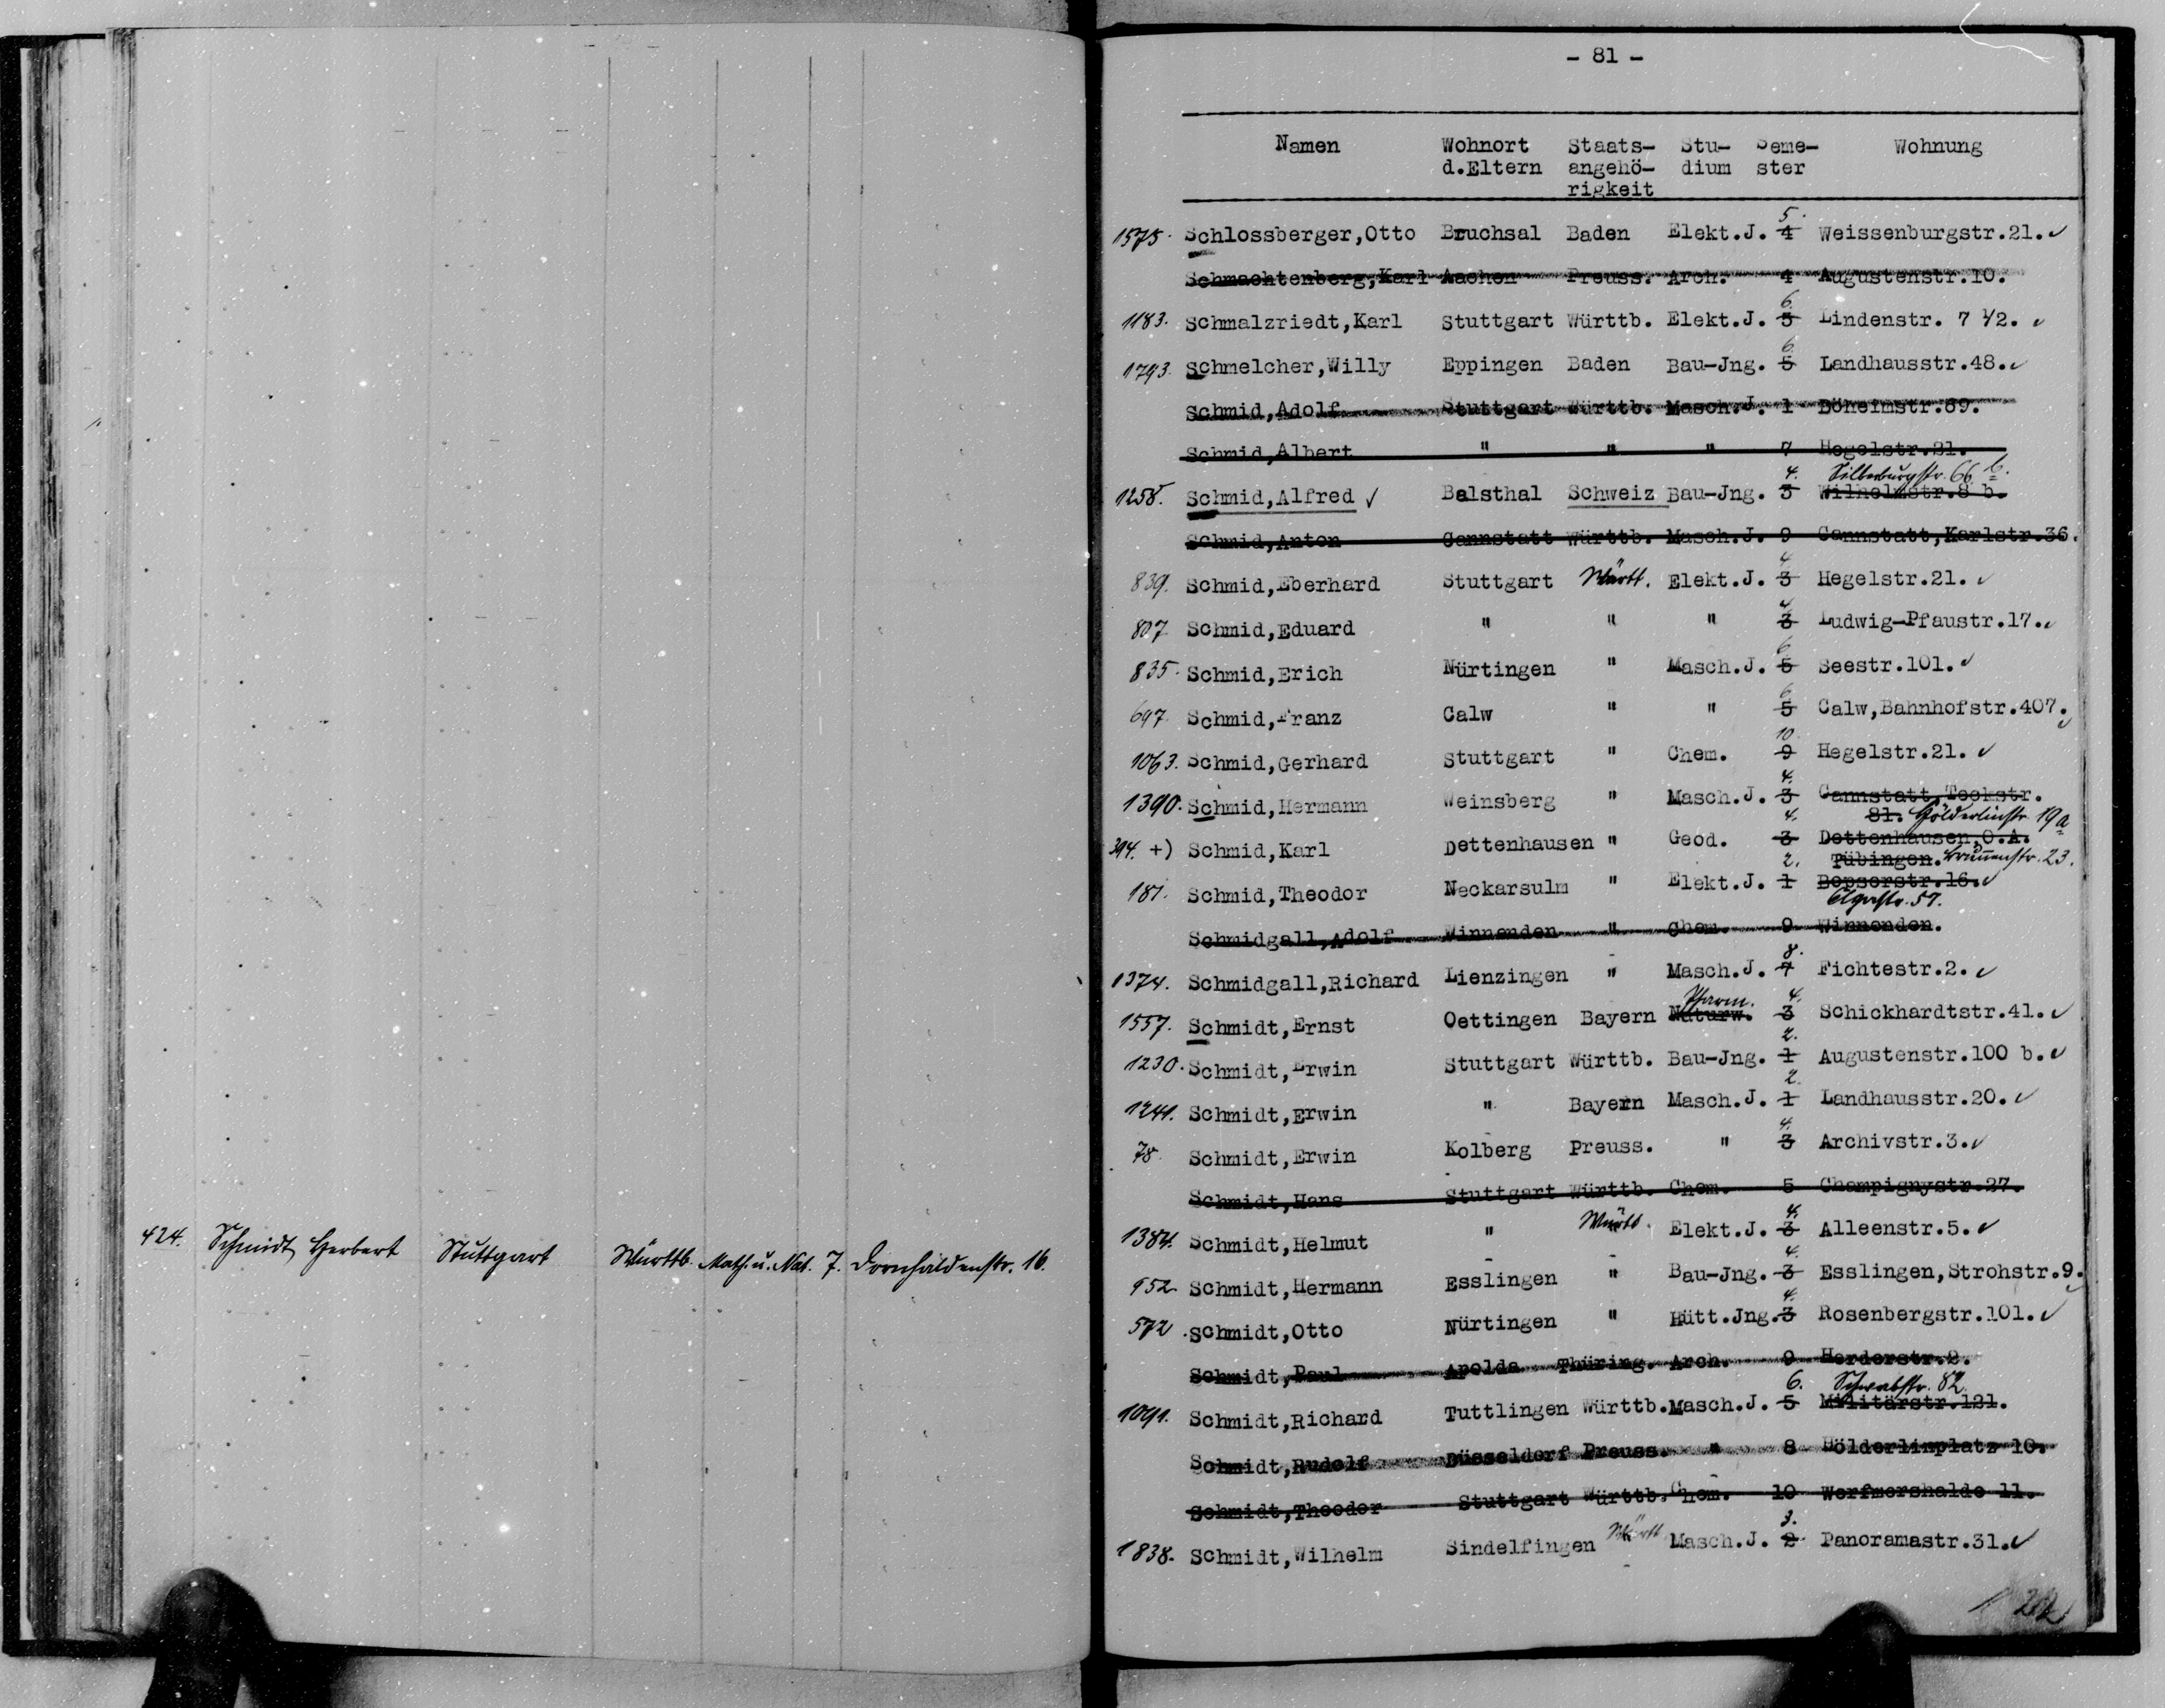 424. Schmidt Herbert Stuttgart Württb. Math. u. Nat. 7. Dornhaldenstr. 16.
- 81 -
Namen Wohnort Staats- Stu- Seme- Wohnung
d.Eltern angehö- dium ster
rigkeit
5.
1575. Schlossberger,Otto Bruchsal Baden Elekt.J. 4 Weissenburgstr.21. ✓
Schmachtenberg,Karl Aachen Preuss. Arch. 4 Augustenstr.10.
6.
1183. Schmalzriedt,Karl Stuttgart Württb. Elekt.J. 5 Lindenstr. 7 1/2. ✓
6.
1793. Schmelcher,Willy Eppingen Baden Bau-Jng. 5 Landhausstr.48. ✓
Schmid,Adolf Stuttgart Württb. Masch.J. 1 Böheimstr.69.
Schmid,Albert " " " 7 Hegelstr.21.
4. Silberburgstr. 66 b.
1258. Schmid,Alfred ✓ Balsthal Schweiz Bau-Jng. 3 Wilhelmstr.8 b.
Schmid,Anton Cannstatt Württb. Masch.J. 9 Cannstatt,Karlstr.36.
4.
839. Schmid,Eberhard Stuttgart Württ. Elekt.J. 3 Hegelstr.21. ✓
4.
807. Schmid,Eduard " " " 3 Ludwig-Pfaustr.17. ✓
6
835. Schmid,Erich Nürtingen " Masch.J. 5 Seestr.101. ✓
6
697. Schmid,Franz Calw " " 5 Calw,Bahnhofstr.407. ✓
10.
1063. Schmid,Gerhard Stuttgart " Chem. 9 Hegelstr.21. ✓
4.
1390. Schmid,Hermann Weinsberg " Masch.J. 3 Cannstatt,Teckstr.
4. 81. Hölderlinstr. 19a
394. +) Schmid,Karl Dettenhausen " Geod. 3 Dettenhausen,O.A.
2. Tübingen. Brunnenstr. 23.
181. Schmid,Theodor Neckarsulm " Elekt.J. 1 Bopserstr.16. ✓
Olgastr. 57.
Schmidgall,Adolf Winnenden " Chem. 9 Winnenden.
8.
1374. Schmidgall,Richard Lienzingen " Masch.J. 7 Fichtestr.2. ✓
Pharm. 4.
1557. Schmidt,Ernst Oettingen Bayern Naturw. 3 Schickhardtstr.41. ✓
2.
1230. Schmidt,Erwin Stuttgart Württb. Bau-Jng. 1 Augustenstr.100 b. ✓
2.
1241. Schmidt,Erwin " Bayern Masch.J. 1 Landhausstr.20. ✓
4.
78. Schmidt,Erwin Kolberg Preuss. " 3 Archivstr.3. ✓
Schmidt,Hans Stuttgart Württb. Chem. 5 Champignystr.27.
4.
1384. Schmidt,Helmut " Württ. Elekt.J. 3 Alleenstr.5. ✓
4.
952. Schmidt,Hermann Esslingen " Bau-Jng. 3 Esslingen,Strohstr.9. ✓
4.
572. Schmidt,Otto Nürtingen " Hütt.Jng. 3 Rosenbergstr.101. ✓
Schmidt,Paul Apolda Thüring. Arch. 9 Herderstr.2.
6. Schwabstr. 82
1091. Schmidt,Richard Tuttlingen Württb. Masch.J. 5 Militärstr.121.
Schmidt,Rudolf Düsseldorf Preuss. " 8 Hölderlinplatz 10.
Schmidt,Theodor Stuttgart Württb. Chem. 10 Werfmershalde 11.
3.
1838. Schmidt,Wilhelm Sindelfingen Württ. Masch.J. 2 Panoramastr.31. ✓